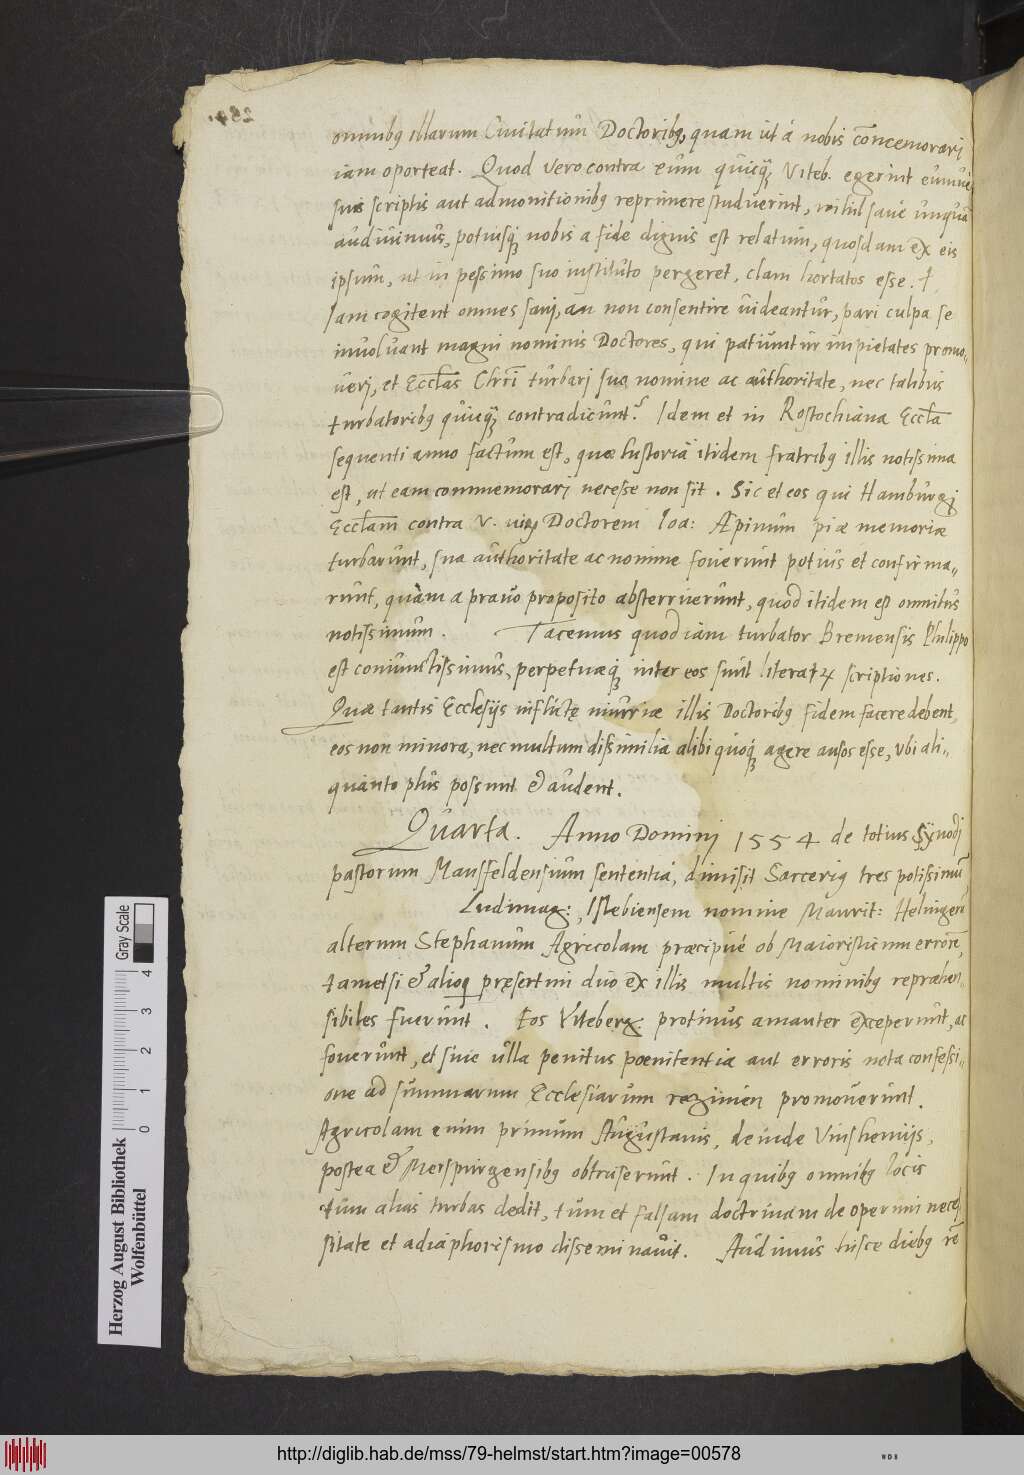 omnibꝰ illarum Ciuitatum Doctoribꝰ, quam ut à nobis cōmemorari
iam oporteat. Quod vero contra eum quicq̃ Viteb. egerint eumue
suis scriptis aut admonitionibꝰ reprimere studuerint, nihil sane unquā
audiuimus, potiusq̃ nobis a fide dignis est relatum, quosdam ex eis
ipsum, ut in pessimo suo instituto pergeret, clam hortatos esse. †.
Iam cogitent omnes sani, an non consentire uideantur, pari culpa se
inuoluant magni nominis Doctores, qui patiuntur impietates promo..
ueri, et Eccl̃as Chr̃i turbari suo nomine ac authoritate, nec talibus
turbatoribꝰ quicq̃ contradicunt? Idem et in Rostochiana Eccl̃a
sequenti anno factum est, quæ historiā itidem fratribꝰ illis notissima
est, ut eam commemorari necesse non sit. Sic et eos qui Hamburgi
Eccl̃am contra V. Doctorem Ioa: Æpinum piæ memoriæ
turbarunt, sua authoritate ac nomine fouerunt potius et confirma..
runt, quàm a prauo proposito absterruerunt, quod itidem est omnibus
notissimum. Tacemus quod iam turbator Bremensis Philippo
est coniunctissimus, perpetuæq̃ inter eos sunt literarꝝ scriptiones.
Quæ tantis Ecclesijs inflictę iniuriæ illis Doctoribꝰ fidem facere debent,
eos non minora, nec multum dissimilia alibi quoq̃ agere ausos esse, ubi ali..
quanto plus possunt & audent.
Quarta. Anno Domini 1554 de totius Synodi
pastorum Mansfeldensium sententia, dimisit Sarcerius tres potissimū,
Ludimag:, Islebiensem nomine Maurit: Helingerū
alterum Stephanum Agricolam præcipuè ob Maioristicum errorē,
tametsi & alioq̃ pręsertim duo ex illis multis nominibꝰ repræhen..
sibiles fuerunt. Eos Viteberg. protinus amanter exceperunt, ac
fouerunt, et sine ulla penitus poenitentia aut erroris nota confessi..
one ad summarum Ecclesiarum regimen promouerunt.
Agricolam enim primum Augustanis, deinde Vinshemijs,
postea & Merspurgensibꝰ obtruserunt. In quibꝰ omnibꝰ locis
tum alias turbas dedit, tum et falsam doctrinam de operum neces
sitate et adiaphorismo disseminauit. Audimus hisce diebꝰ rē
Gray Scale
0 1 2 3 4
Herzog August Bibliothek
Wolfenbüttel
http://diglib.hab.de/mss/79-helmst/start.htm?image=00578
WDB